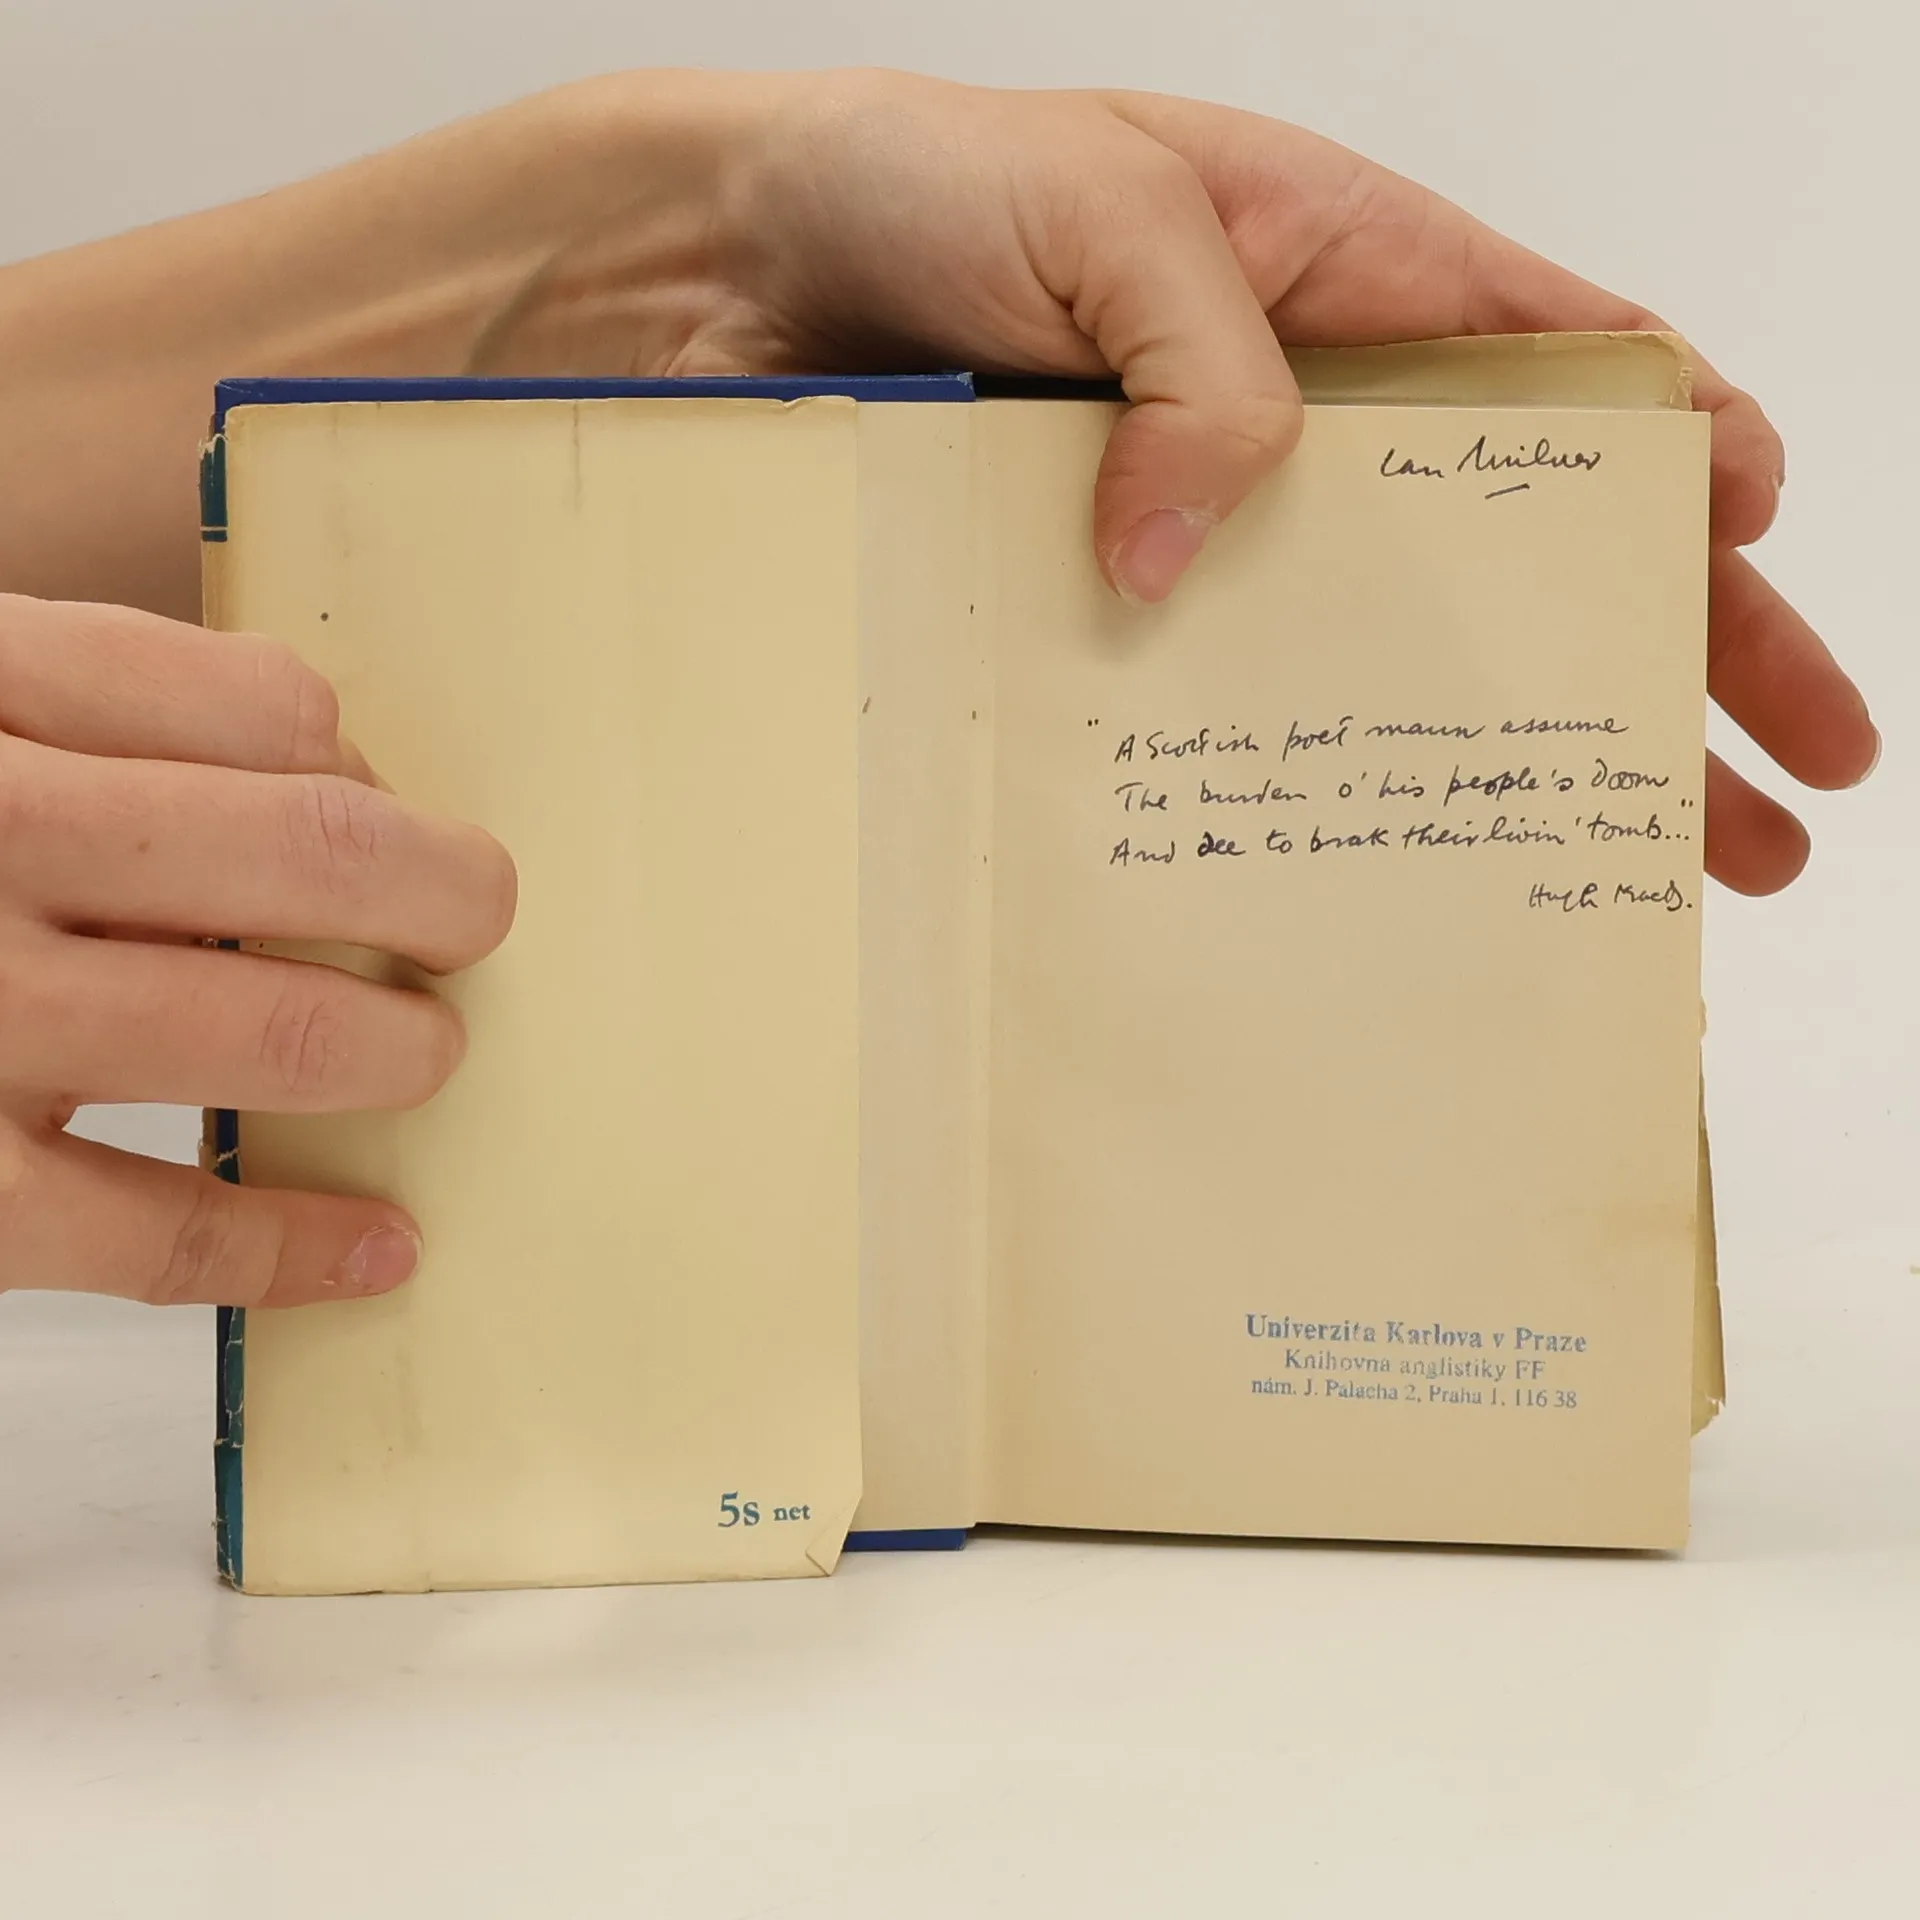 Ian Milner
" A Scottish poet maun assume
The burden o' his people's doom
And dee to brak their livin' tomb..."
Hugh MacD.
Univerzita Karlova v Praze
Knihovna anglistiky FF
nám. J. Palacha 2, Praha 1, 116 38
5s net